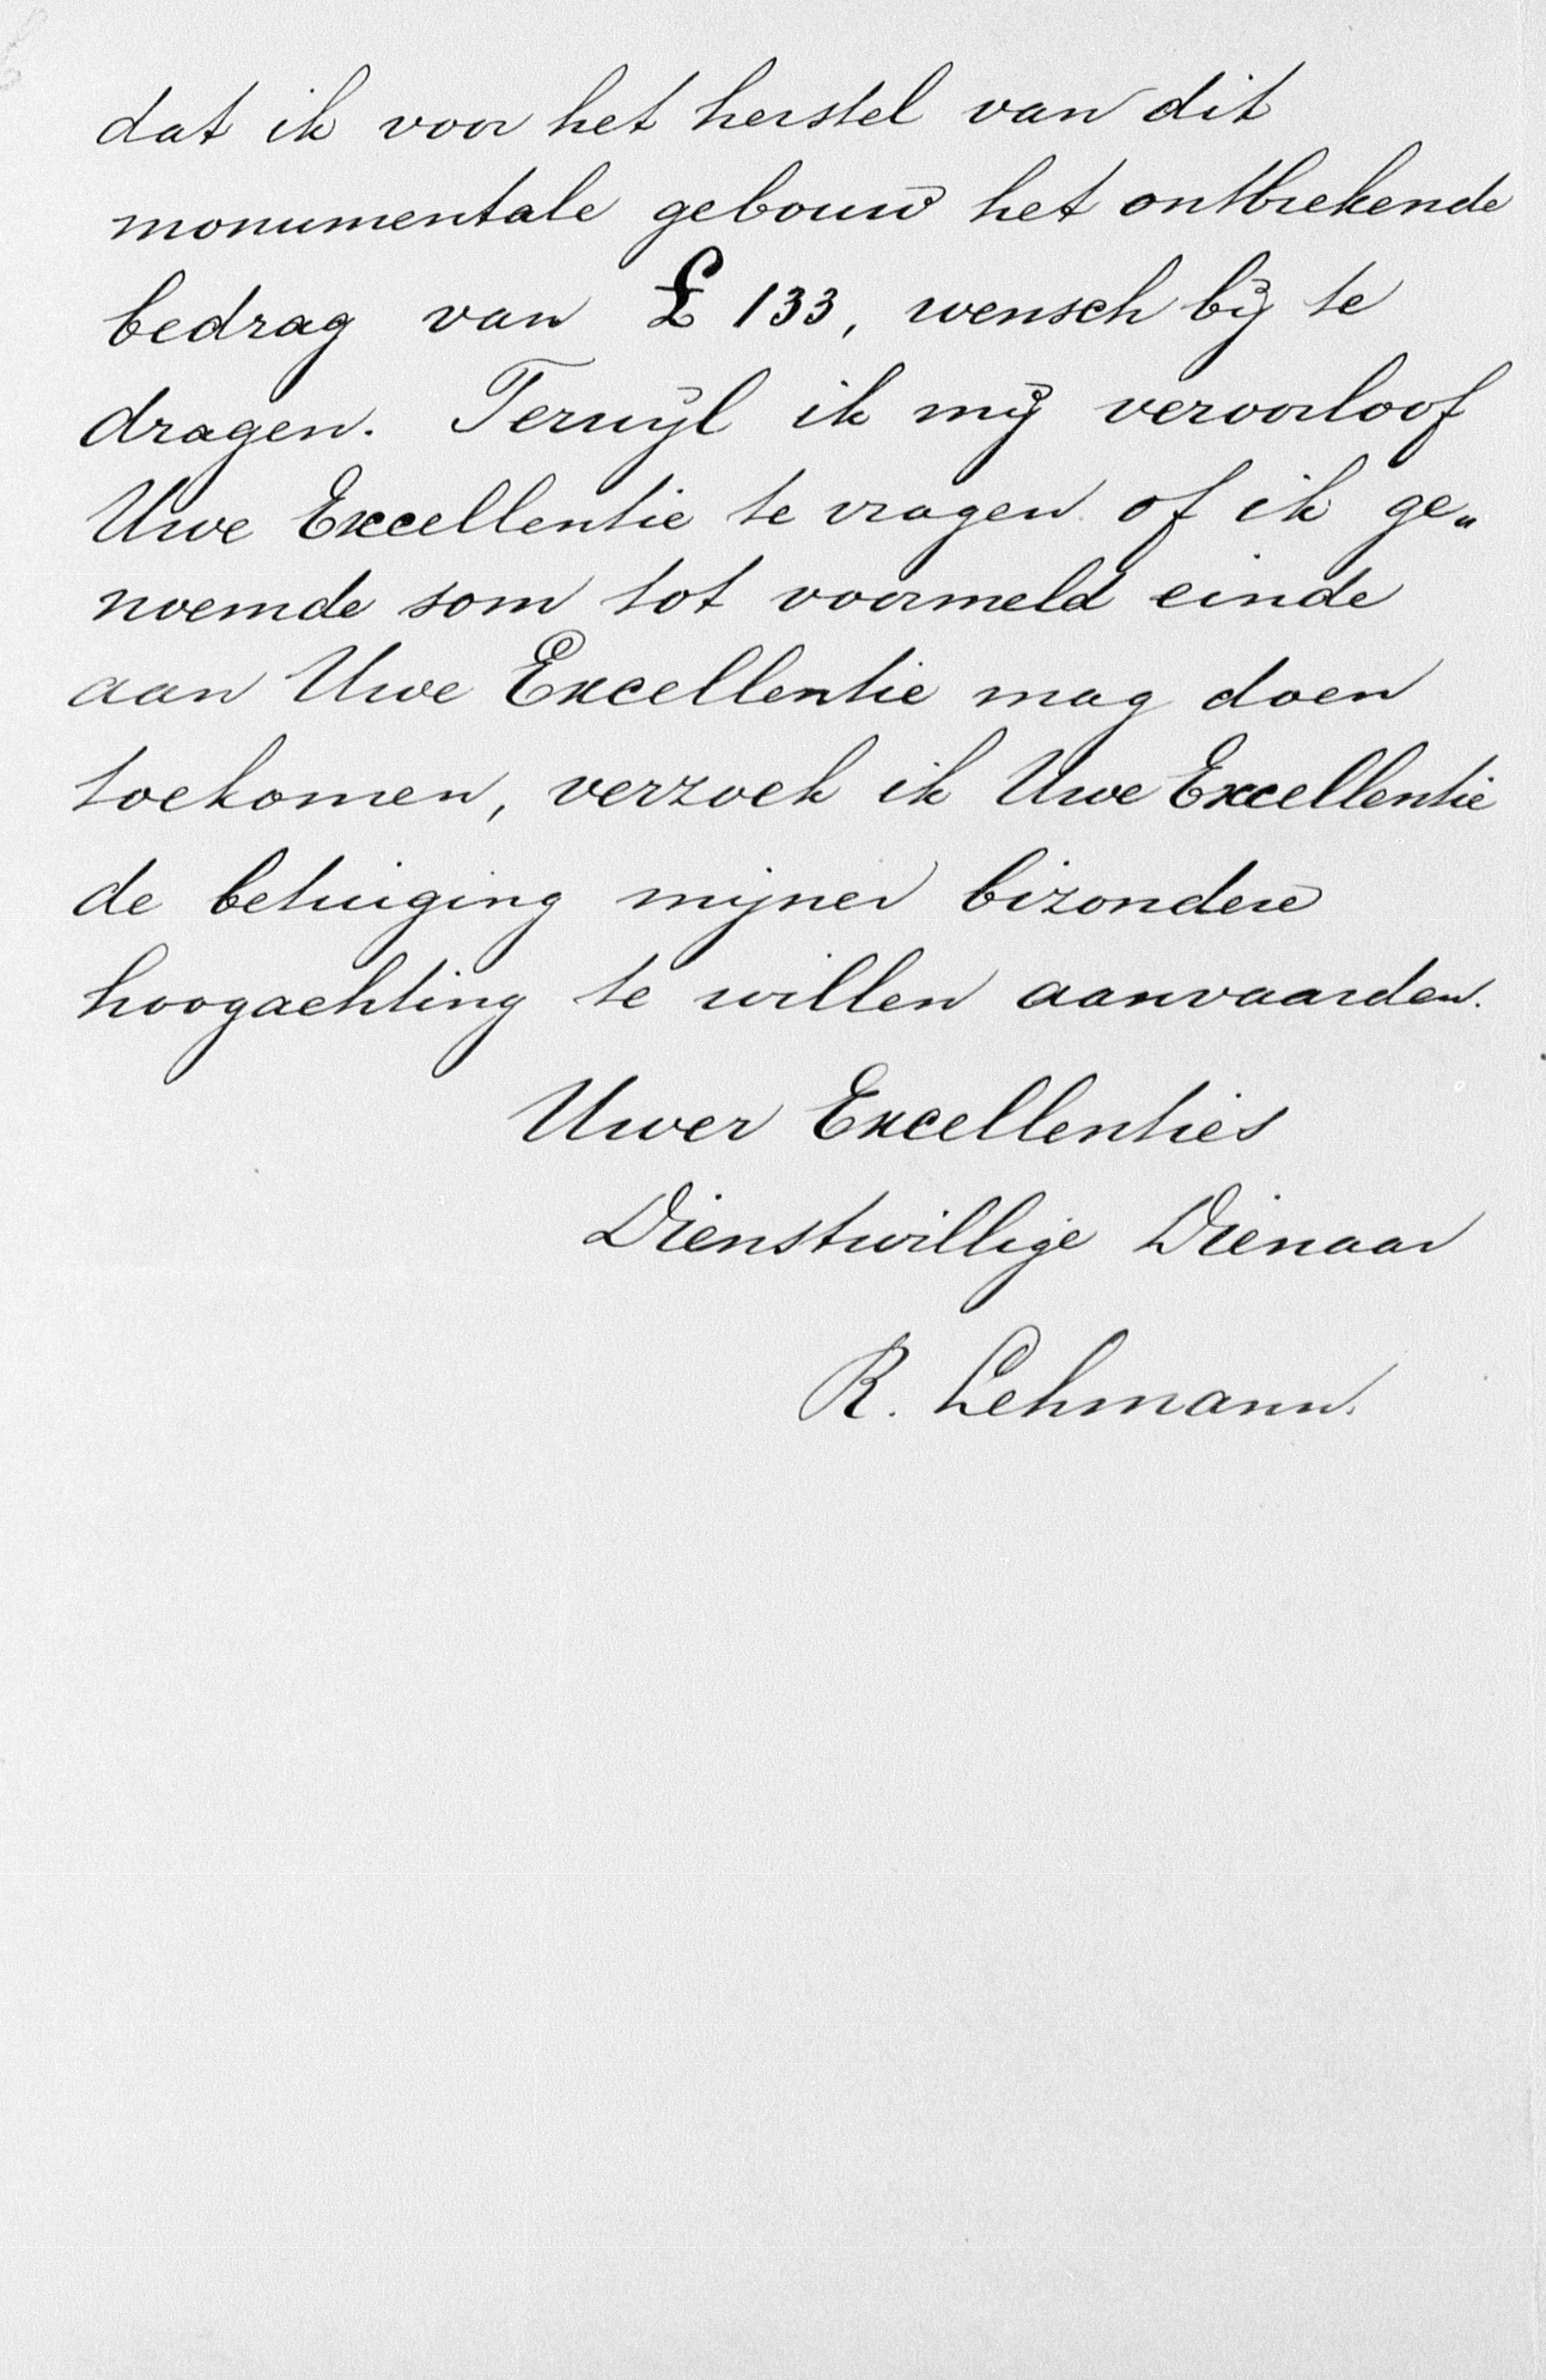 dat ik voor het herstel van dit
monumentale gebouw het ontbrekende
bedrag van £ 133, wensch bij te
dragen. Terwijl ik mij veroorloof
Uwe Excellentie te vragen of ik ge„
noemde som tot voormeld einde
aan Uwe Excellentie mag doen
toekomen, verzoek ik Uwe Excellentie
de betuiging mijner bizondere
hoogachting te willen aanvaarden.
Uwer Excellenties
Dienstwillige Dienaar
R. Lehmann.